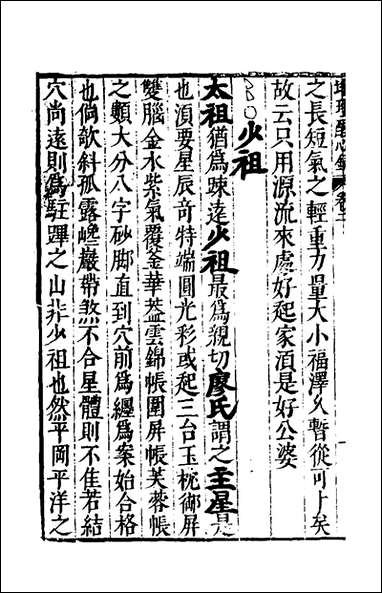 之長短氣之輕重力量大小福澤久暫從可卜矣
故云只用源流來處好起家湏是好公婆
少祖
太祖猶爲踈遠少祖最爲親切廖氏謂之主星是
也湏要星辰竒特端圓光彩或起三台玉枕御屏
雙腦金水紫氣覆釜華蓋雲錦帳圍屏帳芙蓉帳
之顆大分八字砂脚直到穴前爲纏爲案始合格
也倘欹斜孤露巉巖帶煞不合星體則不佳若結
穴尚遠則爲駐蹕之山非少祖也然平岡平洋之